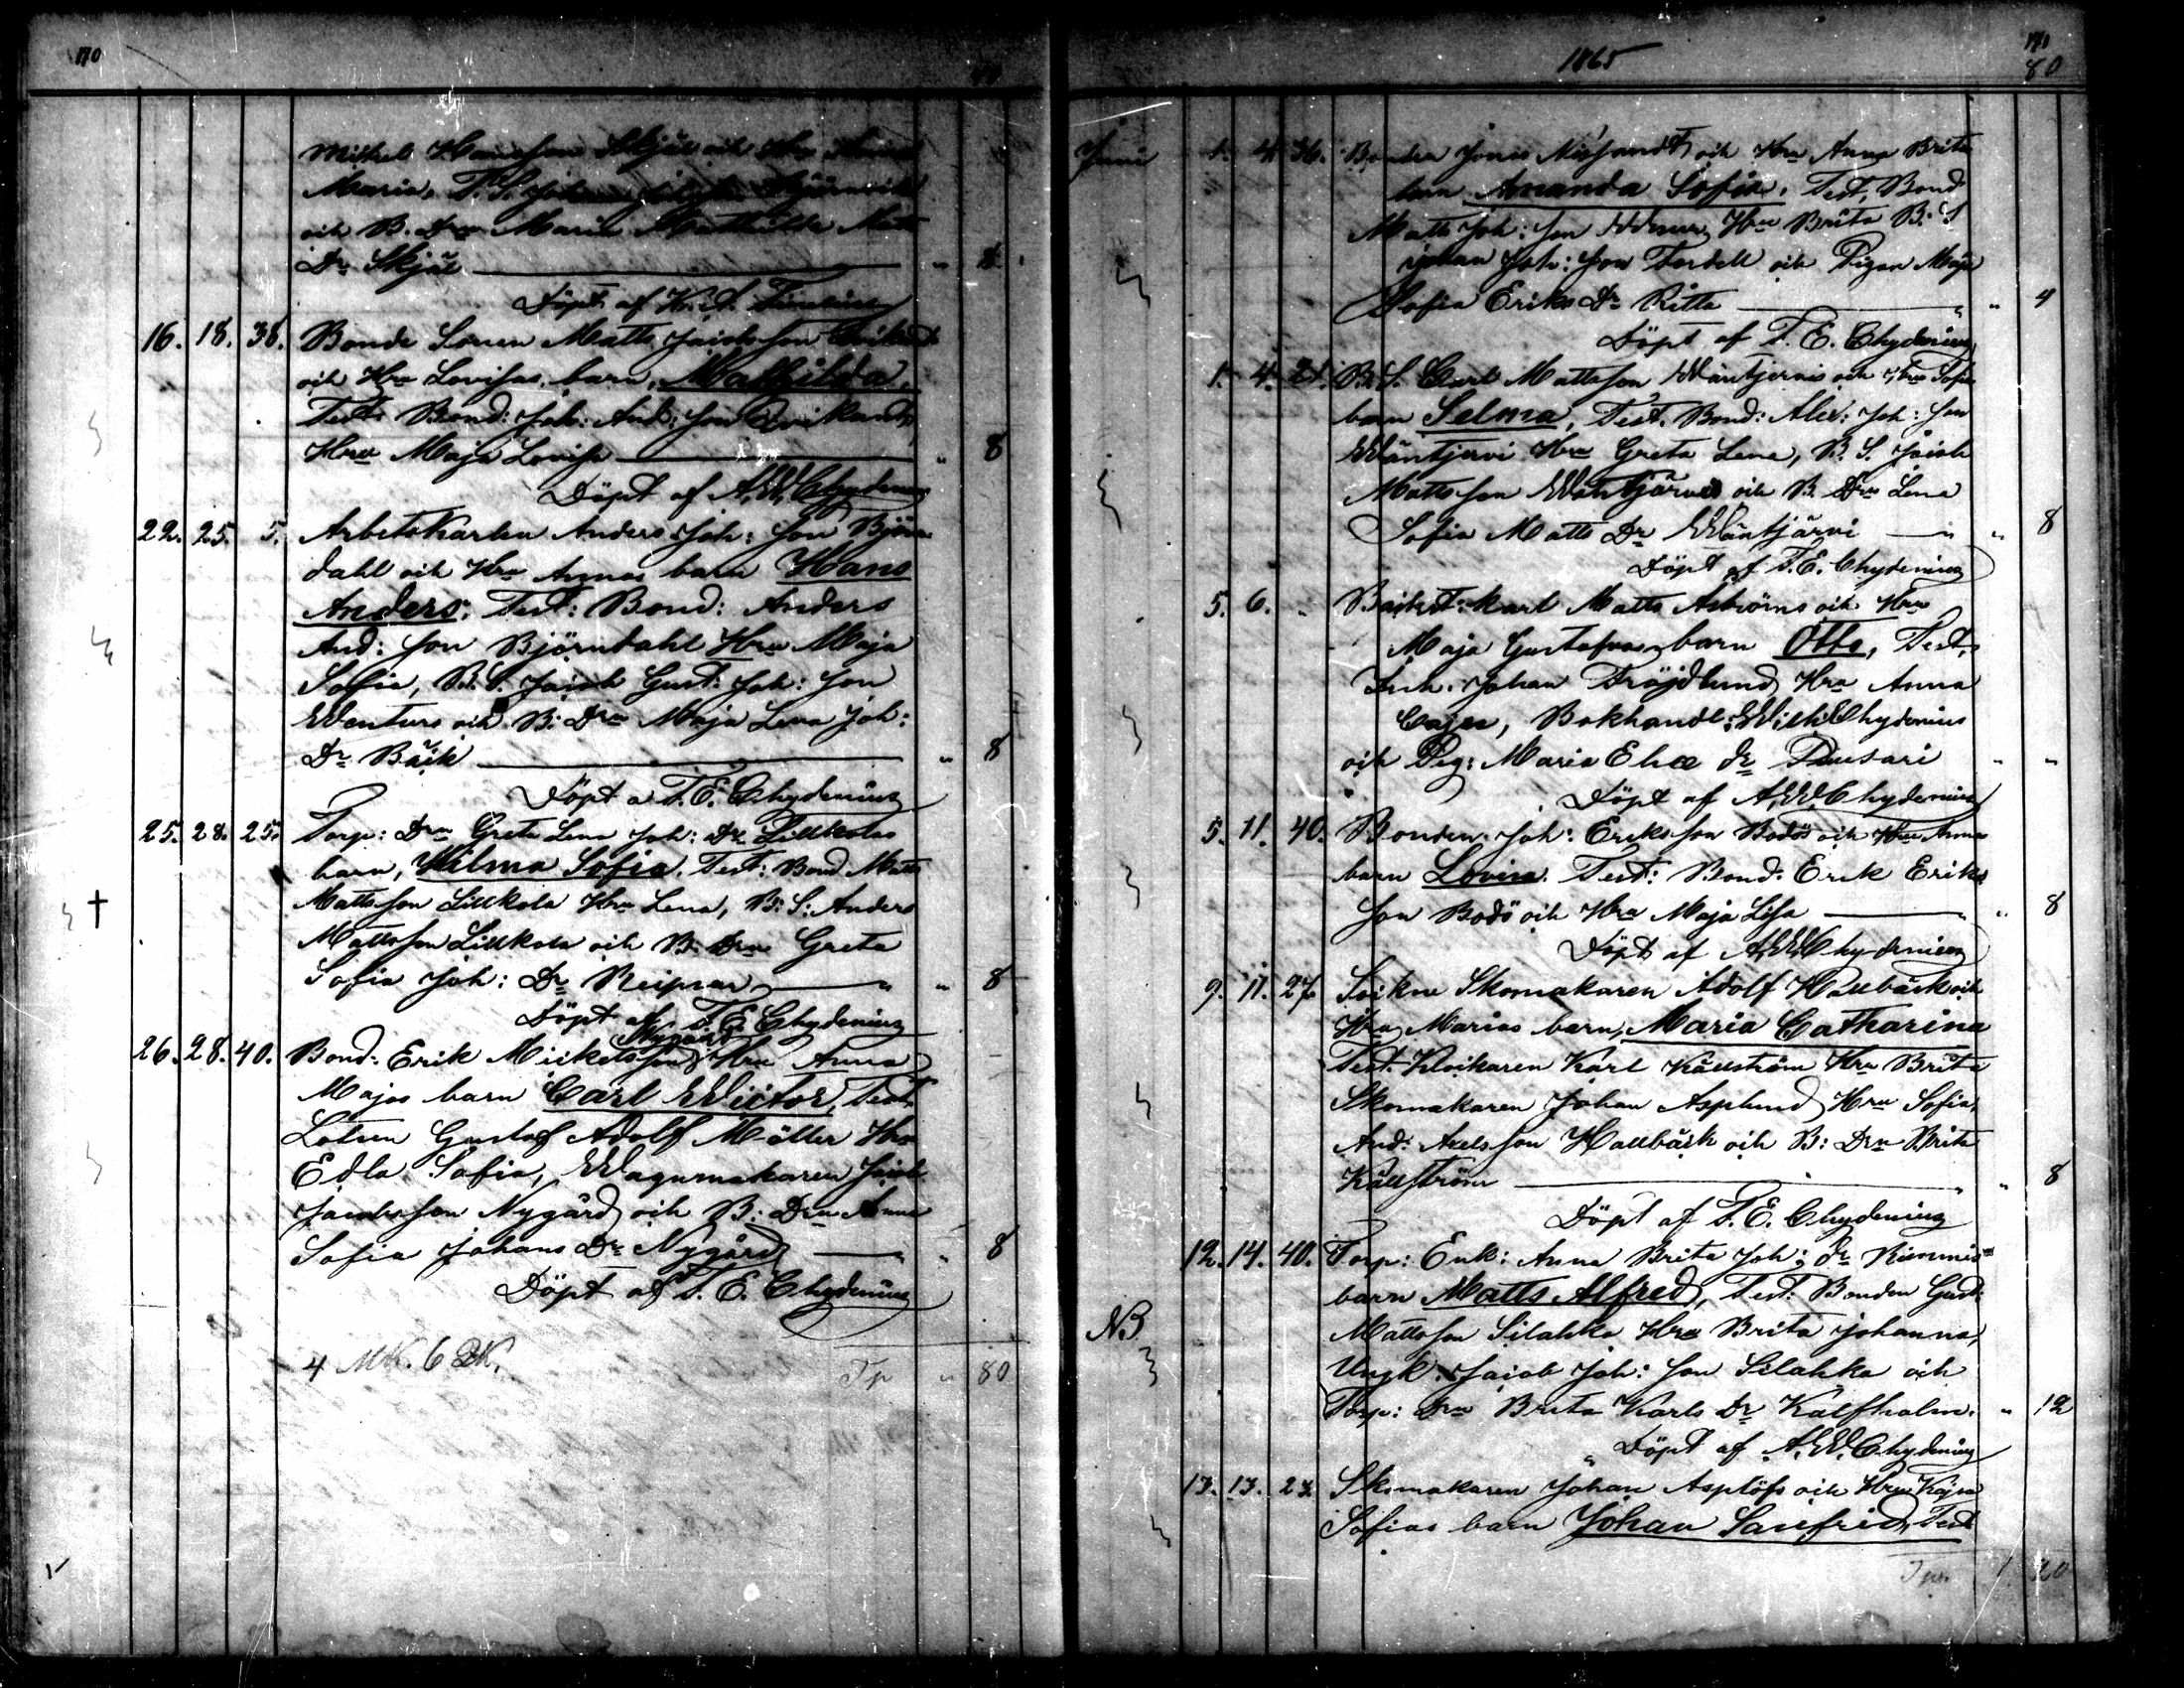 Mikel Hansson Skjäl och Hru Anna
Maria, T. S. Joh
och B. Drn Maria Mathilda Matts
Dr Skjäl — " 8
Döpt af K. A.
16. 18. 38. Bonde Sonen Matts Jacobsson Qvikant
och Hru Lovisas barn, Mathilda.
Test: Bond: Joh: And: son Qvikant,
Hru Maja Lovisa — " 8
Döpt af A. W. Chydenius
22. 25. 5. Arbetskarlen Anders Joh: son Björn-
dahl och Hru Annas barn Hans
Anders; Test: Bond: Anders
And: son Björndahl Hru Maja
Sofia, B. S. Jacob Gust: Joh: son
Wentus och B: Drn Maja Lena Joh:
Dr Bäck — " 8
Döpt a T. E. Chydenius
25. 28. 25. Torp: Drn Greta Lena Joh: Dr Lillkolas
barn, Wilma Sofia. Test: Bond Matts
Mattsson Lillkola Hru Lena, B: S: Anders
Mattsson Lillkola och B. Drn Greta
Sofia Joh: Dr Neiprar — " 8
Döpt af T. E. Chydenius
Nygård
26. 28. 40. Bond: Erik Mickelsson Hru Anna
Majas barn Carl Wictor, Test.
Lotsen Gustaf Adolf Möller Hru
Edla Sofia, Wagnmakaren Jacob
Jacobsson Nygård och B: Drn Anna
Sofia Johans Dr Nygård — " 8
Döpt af T. E. Chydenius
4 MK. 6 QK.
Tp " 80
1865
80
Juni 1. 4. 36. Bonden Jonis och Hru Anna Brita
barn Amanda Sofia. Test, Bond
Matts Joh: son Hru Brita B: S
Johan Joh: son Fordell och Pigan Maja
Sofia Eriks Dr Ritta — " 4
Döpt af T. E. Chydenius
1. 4. 21. B. S. Carl Mattsson Wäntjervis och Hru Sofias
barn Selma, Test. Bond: Alex: Joh: son
Wäntjervi Hru Greta Lena, B. S. Jacob
Mattsson Wäntjärvi och B. Drn Lena
Sofia Matts Dr Wäntjärvi — " 8
Döpt af T. E. Chydenius
5. 6. " karl Matts och Hru
Maja Gustafvas barn Otto, Test,
Inh. Johan Fröjdlund Hru Anna
Cajsa, Bokhandl: Wilh Chydenius
och Pig: Maria Elsæ dr Pusari " "
Döpt af A. W. Chydenius
5. 11. 40. Bonden Joh: Eriksson Bodös och Hru Annas
barn Lovisa. Test: Bond: Erik Eriks
son Bodö och Hru Maja Lisa — " 8
Döpt af A. W. Chydenius
9. 11. 27. Sockne Skomakaren Adolf Hallbäck och
Hru Marias barn, Maria Catharina
Test. Klockaren Karl Källström Hru Brita
Skomakaren Johan Asplund Hru Sofia,
And: Axelsson Hallbäck och B: Drn Brita
Källström — " 8
Döpt af T. E. Chydenius
12. 14. 40. Torp: Enk: Anna Brita Joh: dr Rimmis
barn Matts Alfred, Test: Bonden Gust:
NB. Mattsson Silahka Hru Brita Johanna,
Ungk: Jacob Joh: son Silahka och
Torp: Drn Brita Karls Dr Kalfholm. " 12
Döpt af A. W. Chydenius
13. 13. 23. Skomakaren Johan Asplöfs och Hru Kajsa
Sofias barn Johan Sanfrid, Test
Tp. 1 20